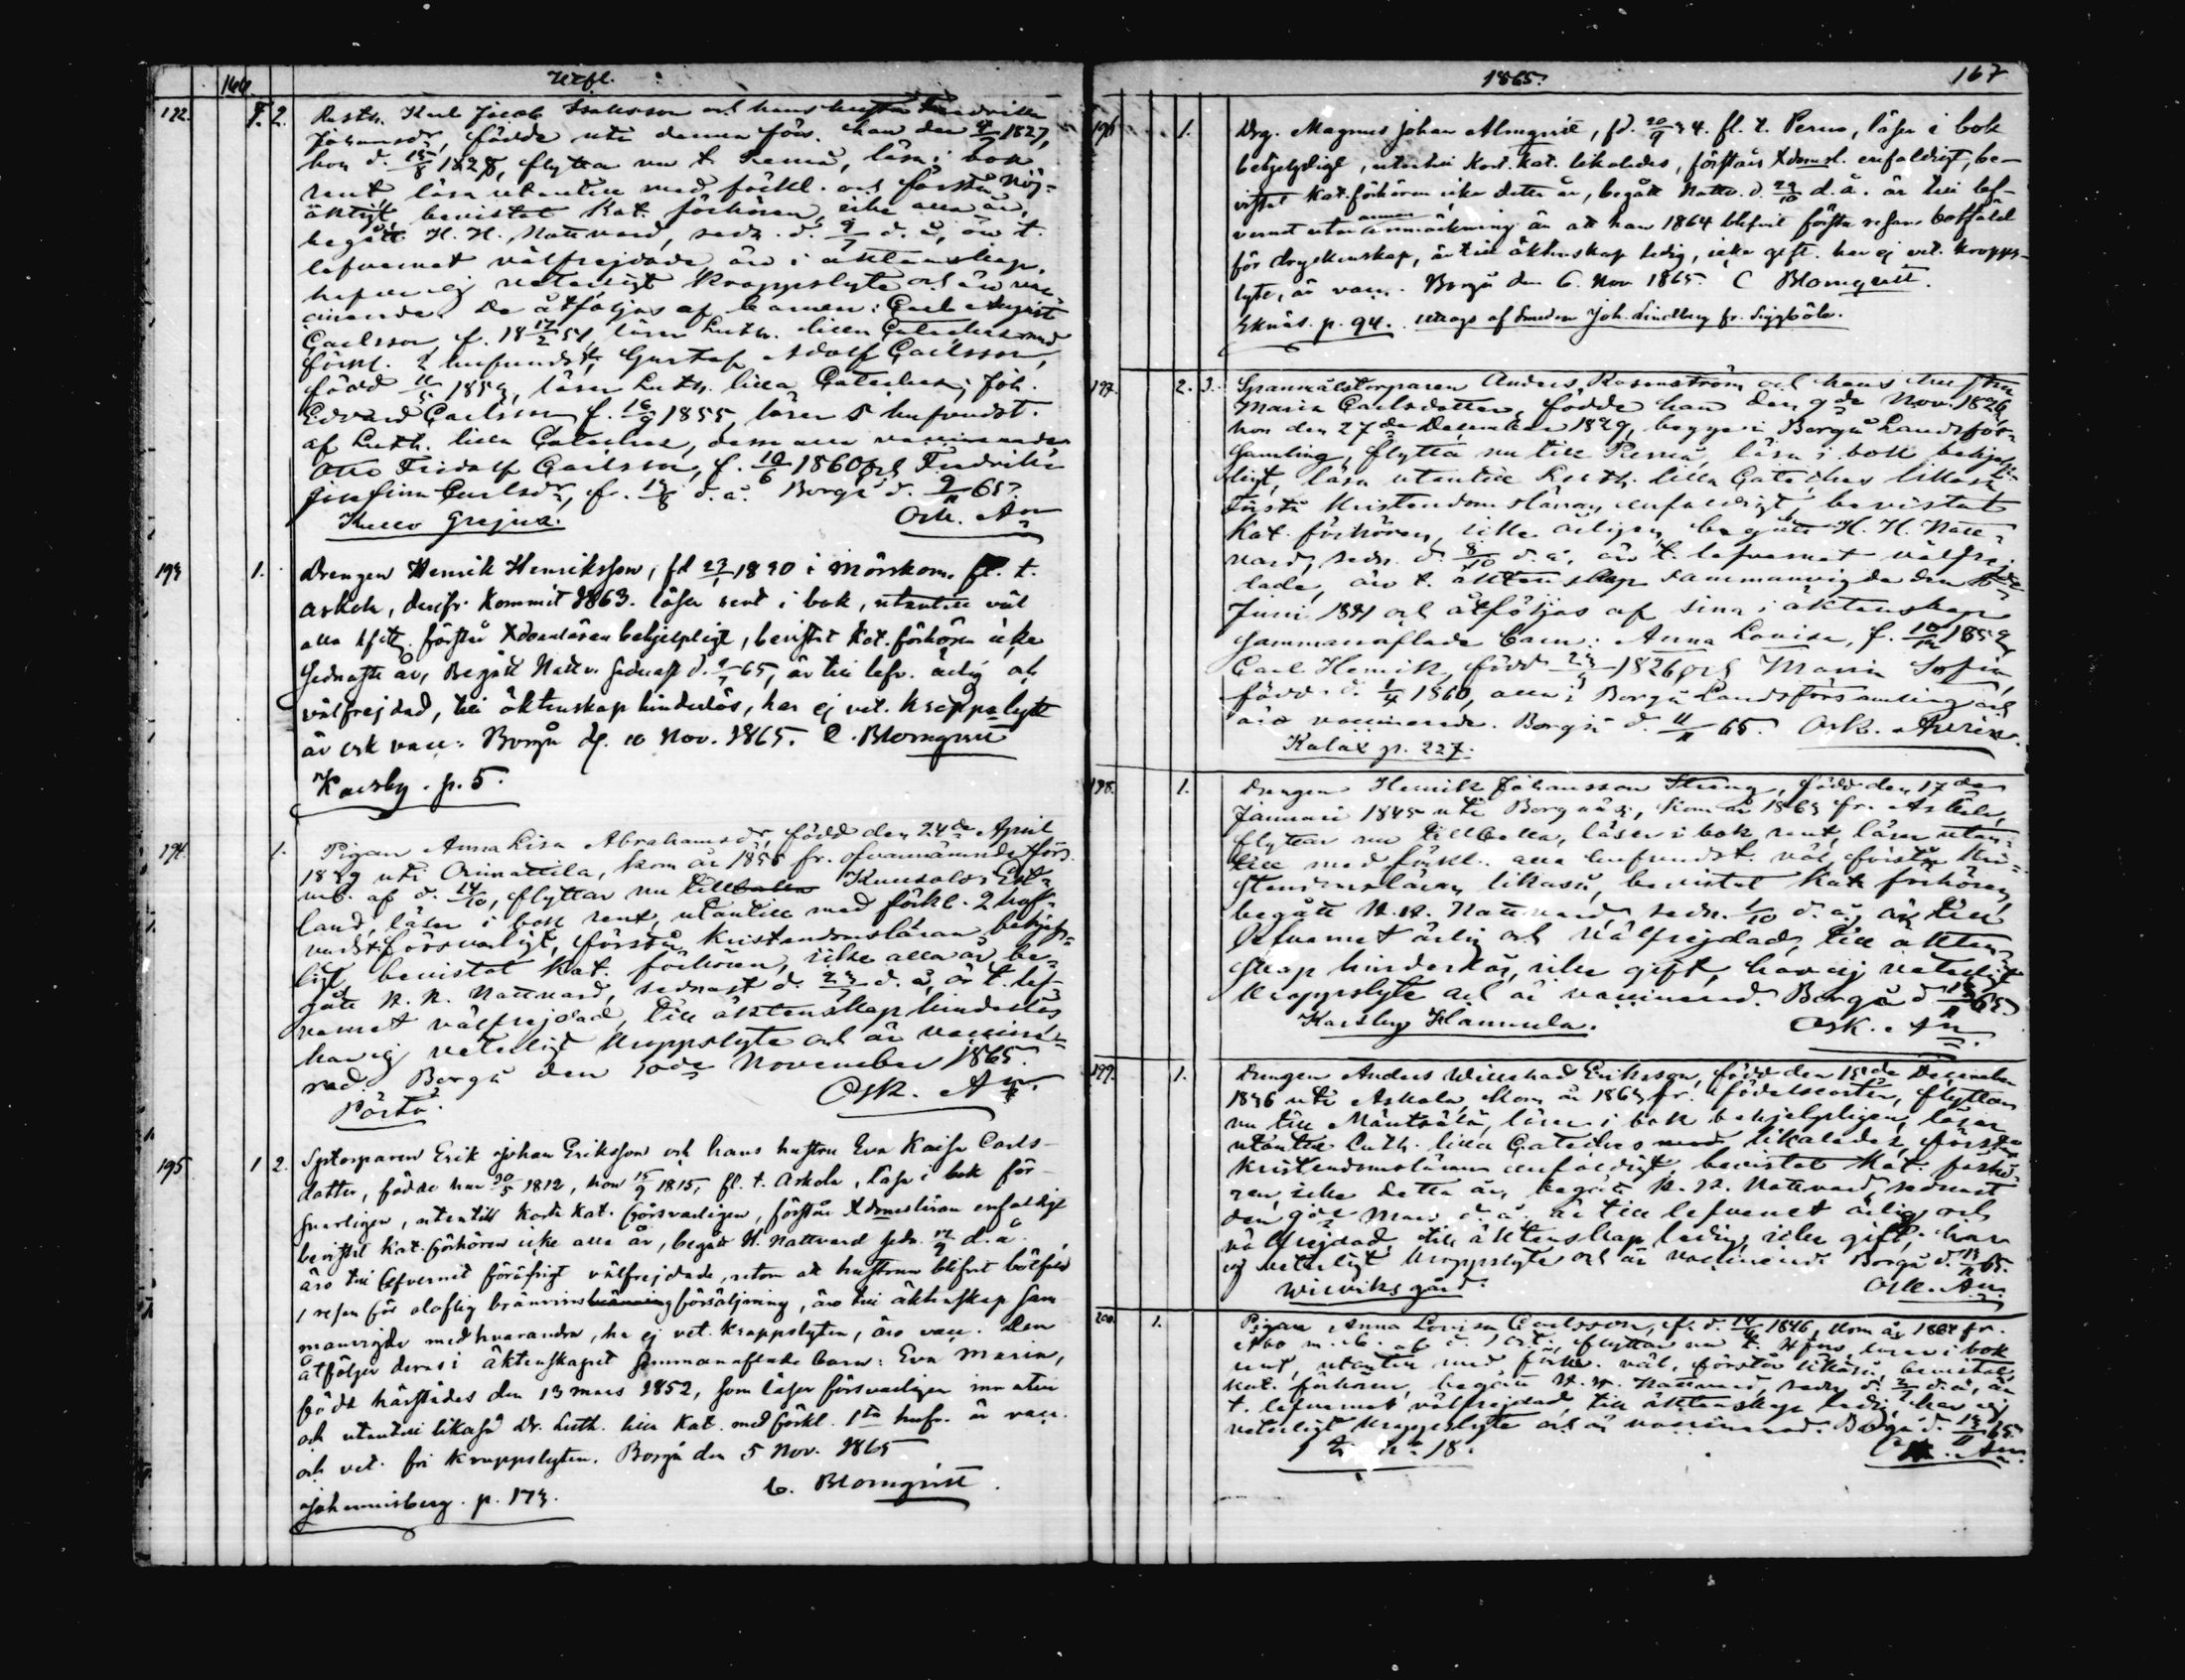 166. Utfl.
192. F. 2. Karl Jacob Isaksson och hans hustru Fredrika
Johansdr, födde uti denna förs. han den 1827,
hon d. 15/8 1828, flytta nu t. Pernå, läsa i bok
rent, läsa utantill med förkl. och förstå nöj-
aktigt, bevistat Kat. förhören, icke alla år,
begått H. H. Nattvard, sedn. d. d. å, äro t.
lefvernet välfrejdade äro i äktenskap,
hafva ej veterligt kroppslyte och äro vac-
cinerade. De åtföljas af barnen: Carl August
Carlsson, f. 18 17/2 51, läser Luth. lilla Cateches med
förkl. 2 hufvudst., Gustaf Adolf Carlsson,
född 1853, läser Luth. lilla Cateches; Joh.
Edvard Carlsson f. 16/9 1855, läser 5 hufvudst.
af Luth. lilla Cateches, dem alla vaccinerade
Otto Fridolf Carlsson, f. 10/6 1860 och Fredrika
Josefina Carlsdr, f. d. å. Borgå d. 9/11 65.
Kullo Grejus. Osk. An
193. 1. Drengen Henrik Henriksson, fd 23/1 1840 i Mörskom. fl. t.
Askola, derifr. kommit 1863. läser rent i bok, utantill väl
alla hfst. förstår Xdomläran behjelpligt, bevistat Kat. förhören icke
sednaste år, Begått Nattv. sednast d. 65, är till lefv. ärlig och
välfrejdad, till äktenskap hinderlös, har ej vet. kroppslyte
är ock vacc. Borgå d. 10 Nov. 1865. C. Blomqvist
Karsby. p. 5.
194. 1. Pigan Anna Lisa Abrahamsdr, född den 24de April
1839 uti Orimattila, kom år 1856 fr. ofvannämnde förs.
mb. af d. 14/10, flyttar nu till Kuusalo i Est-
land, läser i bok rent, utantill med förkl. 2 huf-
vudst. försvarligt, förstår kristendomsläran behjelp-
ligt, bevistat Kat. förhören, icke alla år, be-
gått H. H. Nattvard, sednast d. 23/7 d. å, är t. lef-
vernet välfrejdad, till äktenskap hinderlös
har ej veterligt kroppslyte och är vaccine-
rad. Borgå den 10de November 1865.
Pörtö. Osk. An.
195 1 2. Sptorparen Erik Johan Eriksson och hans hustru Eva Kaisa Carls-
dotter, födde han 30/5 1812, hon 15/9 1815, fl. t. Askola, läsa i bok för-
svarligen, utantill korta Kat. försvarligen, förstår Xdomsläran enfaldigt
bevistat Kat. förhören icke alla år, begått H. Nattvard sedn. 17/9 d. å
äro till lefvernet föröfrigt välfrejdade, utom att hustrun blifvit bötfäld
1 resan för olaflig bränvinsförsäljning, äro till äktenskap sam-
manvigde med hvarandra, ha ej vet. kroppslyten, äro vacc. Den
åtföljer deras i äktenskapet sammanaflade barn: Eva Maria,
född härstädes den 13 mars 1852, som läser försvarligen innantill
och utantill likaså Dr. Luth. lilla Kat. med förkl. 1sta hufv. är vacc.
och vet. fri kroppslyten. Borgå den 5 Nov. 1865
Johannisberg. p. 173. C. Blomqvist.
1865. 167
196 1. Drg. Magnus Johan Almqvist, fd. 20/9 44. fl. t. Perno, läser i bok
behjelpligt, utantill kort. kat. likaledes, förstår Xdomsl. enfaldigt, be-
vistat Kat. förhören icke detta år, begått Nattv. d. 22/10 d. å. är till lef-
vernet utan annan anmärkning än att han 1864 blifvit första resan bötfäld
för dryckenskap, är till äktenskap ledig, icke gift. har ej vet. kropps-
lyte, är vacc. Borgå den 6. Nov 1865. C Blomqvist.
Eknäs. p. 94. uttogs af Smeden Joh. Lindberg fr. Siggböle.
197. 2. 3. Spannmålstorparen Anders Rosenström och hans hustru
Maria Carlsdotter, födde han den 9de Nov. 1826,
hon den 27de December 1829, begge i Borgå Landsför-
samling, flytta nu till Pernå, läsa i bok behjelp-
ligt, läsa utantill Luth. lilla Cateches likaså,
förstå kristendomsläran enfaldigt, bevistat
Kat. förhören, icke årligen, begått H. H. Natt-
vard, sedn. d. 8/10 d. å, äro t. lefvernet välfrej-
dade, äro t. äktenskap sammanvigde den
Juni 1851 och åtföljas af sina i äktenskap
sammanaflade barn: Anna Lovisa, f. 1852
Carl Henrik, född 1856 och Maria Sofia,
född d. 1/4 1860, alla i Borgå Landsförsamling och
äro vaccinerade. Borgå d. 11/11 65. Osk.
Kalax p. 227.
198. 1. Drengen Henrik Johansson Streng, född den 17de
Januari 1845 uti Borgnäs, kom år 1863 fr. Askola,
flyttar nu till, läser i bok rent, läser utan-
till med förkl. alla hufvudst. väl, förstår kri-
stendomsläran likaså, bevistat Kat. förhören,
begått H. H. Nattvard, sedn. 1/10 d. å, är till
lefvernet ärlig och välfrejdad, till äkten-
skap hinderlös, icke gift, har ej veterligt
kroppslyte och är vaccinerad. Borgå d. 65.
Karsby Hannula. Osk. An.
199. 1. Drengen Anders Willehad Eriksson, född den 15de December
1846 uti Askola, kom år 1863 fr. födelseorten, flyttar
nu till Mäntsälä, läser i bok behjelpligen, läser
utantill Luth. lilla Cateches likaledes, förstår
kristendomsläran enfaldigt, bevistat Kat. förhö-
ren, icke detta år, begått H. H. Nattvard, sednast
den Mars d. å. är till lefvernet ärlig och
välfrejdad, till äktenskap ledig, icke gift, har
ej veterligt kroppslyte och är vaccinerad. Borgå d. 13/11 65.
Wiksviks gård. Osk. An.
200. 1. Pigan Anna Lovisa Carlsson, f. d. 1846, kom år 1864 fr.
flyttar nu t. H:fors, läser i bok
rent, utantill med förkl. väl, förstår likaså, bevistat
Kat. förhören, begått H. H. Nattvard, sedn d. d. å, är
t. lefvernet välfrejdad, till äktenskap ledig, har ej
veterligt kroppslyte och är vaccinerad. Borgå d. 65.
18. Osk. An.